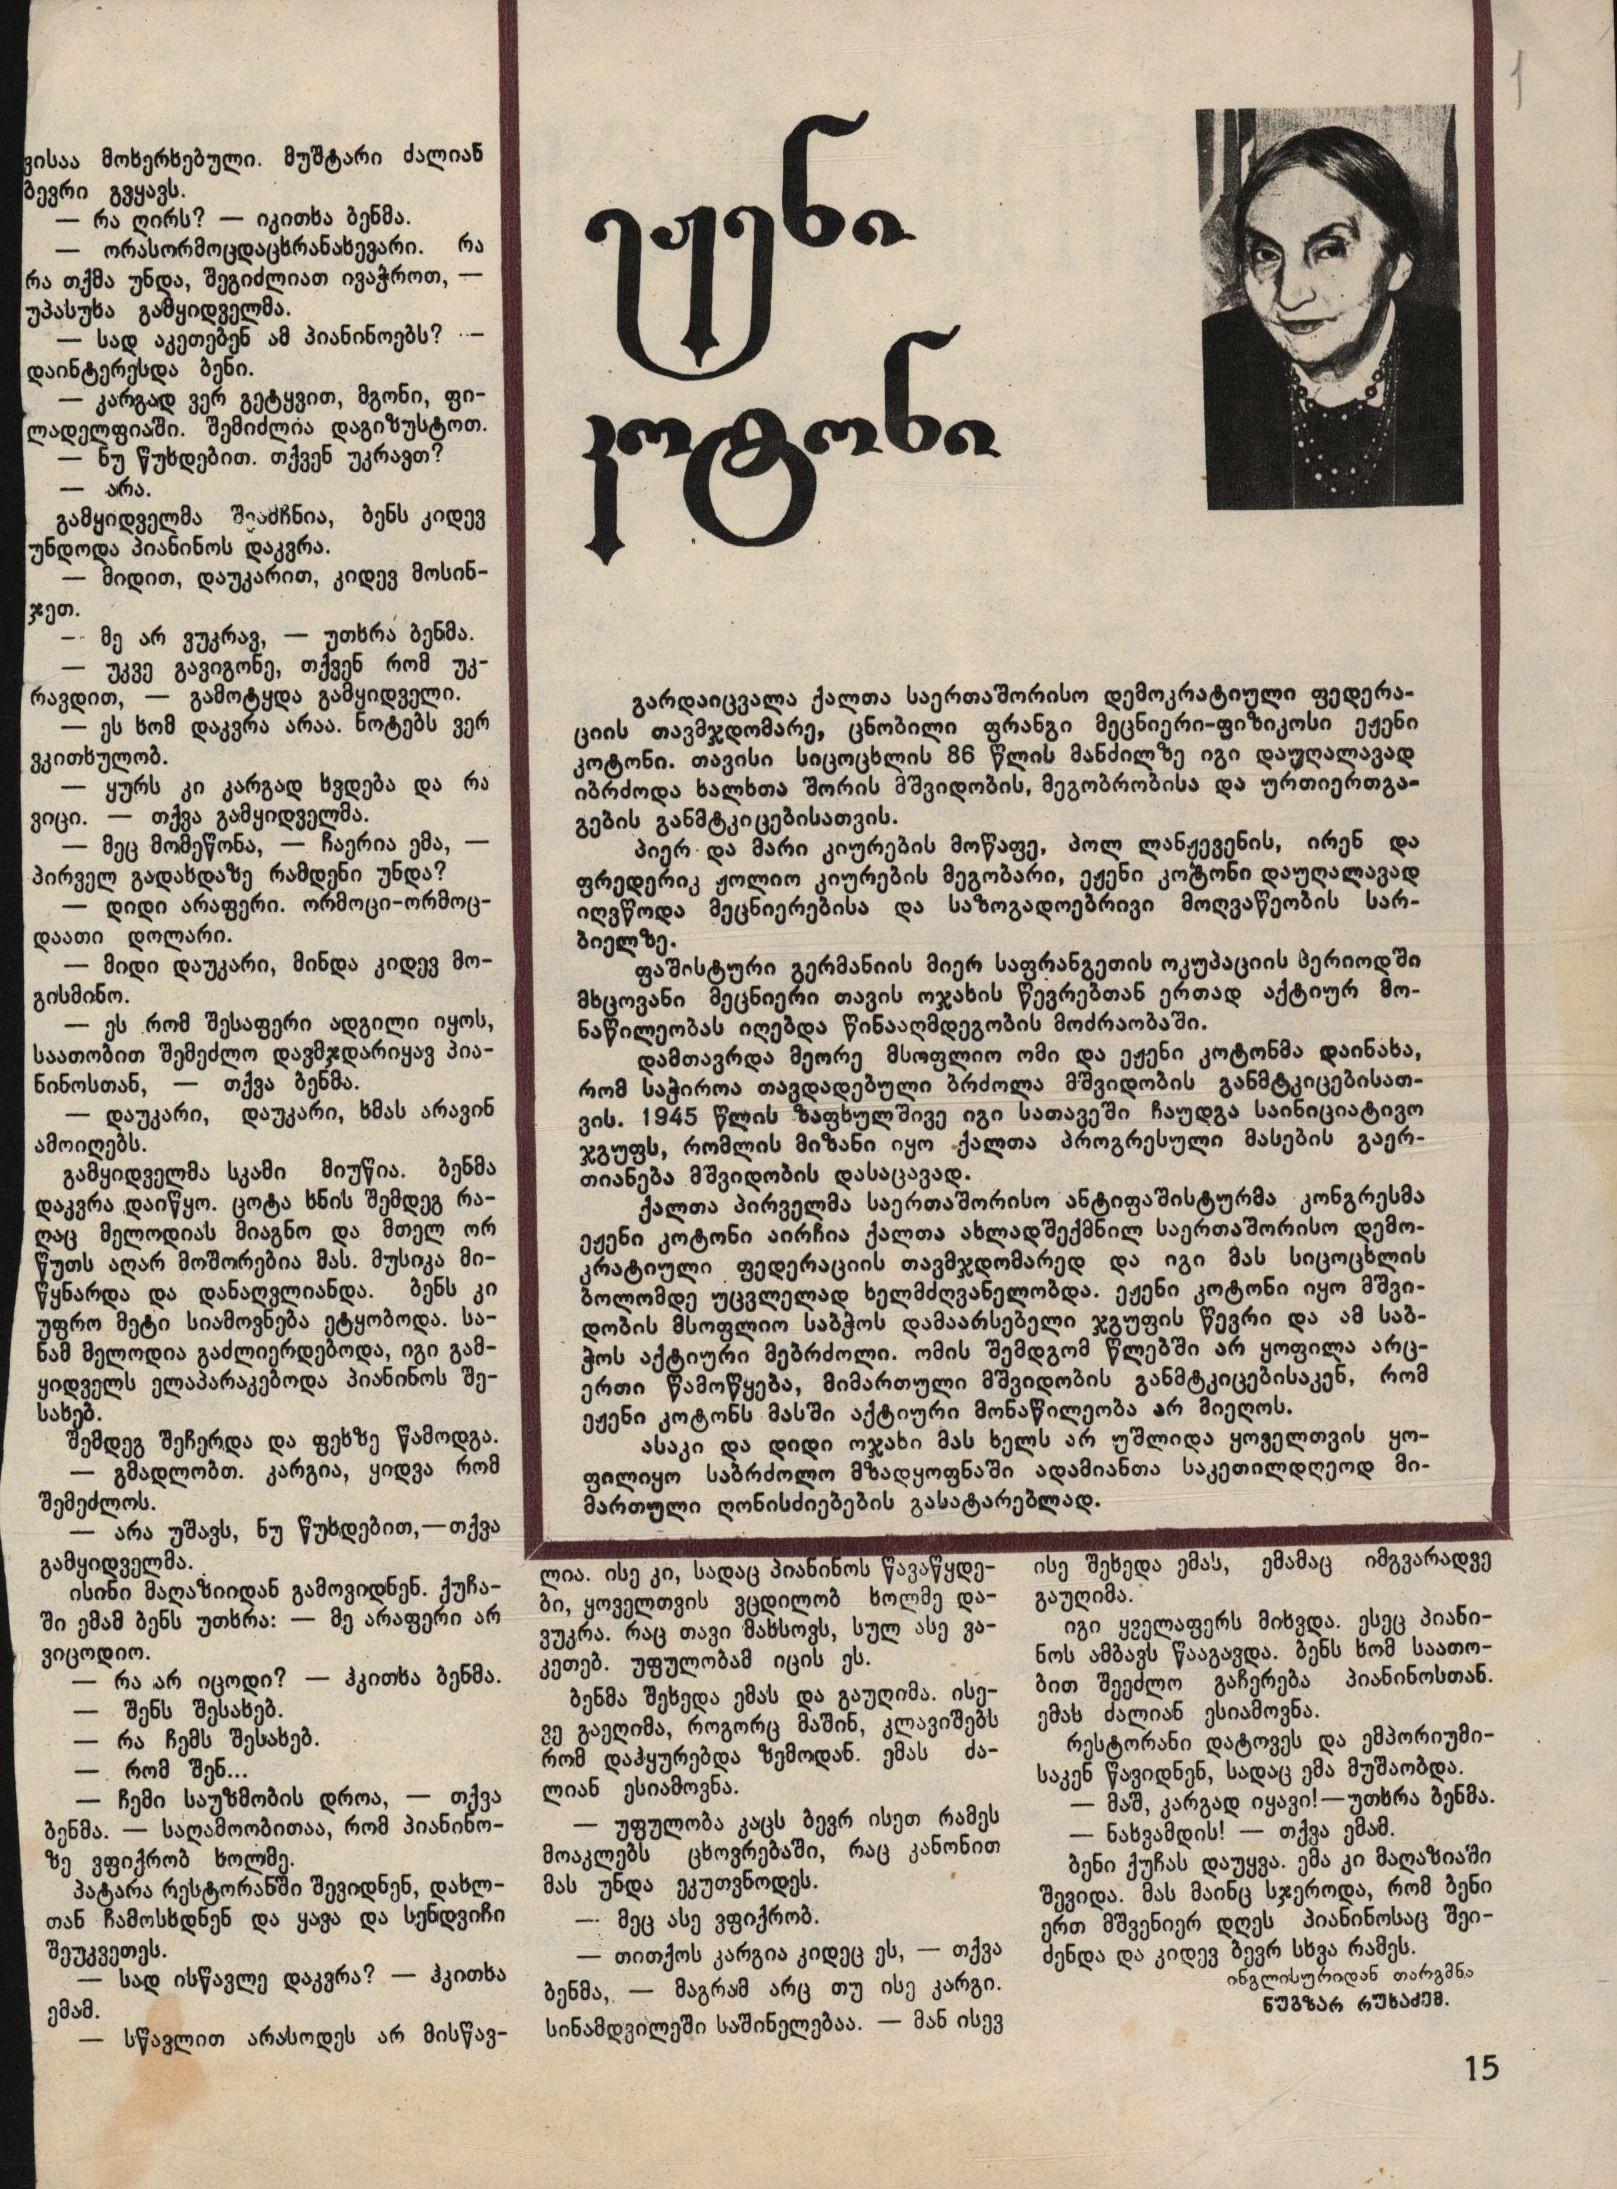 ვისაა მოხერხებული. მუშტარი ძალიან
ბევრი გვყავს.
— რა ღირს? — იკითხა ბენმა.
— ორასორმოცდაცხრანახევარი. რა
რა თქმა უნდა, შეგიძლიათ ივაჭროთ, —
უპასუხა გამყიდველმა.
— სად აკეთებენ ამ პიანინოებს? —
დაინტერესდა ბენი.
— კარგად ვერ გეტყვით, მგონი, ფი-
ლადელფიაში. შემიძლია დაგიზუსტოთ.
— ნუ წუხდებით. თქვენ უკრავთ?
— არა.
გამყიდველმა შეამჩნია, ბენს კიდევ
უნდოდა პიანინოს დაკვრა.
— მიდით, დაუკარით, კიდევ მოსინ-
ჯეთ.
— მე არ ვუკრავ, — უთხრა ბენმა.
— უკვე გავიგონე, თქვენ რომ უკ-
რავდით, — გამოტყდა გამყიდველი.
— ეს ხომ დაკვრა არაა. ნოტებს ვერ
ვკითხულობ.
— ყურს კი კარგად ხვდება და რა
ვიცი. — თქვა გამყიდველმა.
— მეც მომეწონა, — ჩაერია ემა, —
პირველ გადახდაზე რამდენი უნდა?
— დიდი არაფერი. ორმოცი-ორმოც-
დაათი დოლარი.
— მიდი დაუკარი, მინდა კიდევ მო-
გისმინო.
— ეს რომ შესაფერი ადგილი იყოს,
საათობით შემეძლო დავმჯდარიყავ პია-
ნინოსთან, — თქვა ბენმა.
— დაუკარი, დაუკარი, ხმას არავინ
ამოიღებს.
გამყიდველმა სკამი მიუწია. ბენმა
დაკვრა დაიწყო. ცოტა ხნის შემდეგ რა-
ღაც მელოდიას მიაგნო და მთელ ორ
წუთს აღარ მოშორებია მას. მუსიკა მი-
წყნარდა და დანაღვლიანდა. ბენს კი
უფრო მეტი სიამოვნება ეტყობოდა. სა-
ნამ მელოდია გაძლიერდებოდა, იგი გამ-
ყიდველს ელაპარაკებოდა პიანინოს შე-
სახებ.
შემდეგ შეჩერდა და ფეხზე წამოდგა.
— გმადლობთ. კარგია, ყიდვა რომ
შემეძლოს.
— არა უშავს, ნუ წუხდებით,—თქვა
გამყიდველმა.
ისინი მაღაზიიდან გამოვიდნენ. ქუჩა-
ში ემამ ბენს უთხრა: — მე არაფერი არ
ვიცოდიო.
— რა არ იცოდი? — ჰკითხა ბენმა.
— შენს შესახებ.
— რა ჩემს შესახებ.
— რომ შენ...
— ჩემი საუზმობის დროა, — თქვა
ბენმა. — საღამოობითაა, რომ პიანინო-
ზე ვფიქრობ ხოლმე.
პატარა რესტორანში შევიდნენ, დახლ-
თან ჩამოსხდნენ და ყავა და სენდვიჩი
შეუკვეთეს.
— სად ისწავლე დაკვრა? — ჰკითხა
ემამ.
— სწავლით არასოდეს არ მისწავ-
ეჟენი
კოტონი
გარდაიცვალა ქალთა საერთაშორისო დემოკრატიული ფედერა-
ციის თავმჯდომარე, ცნობილი ფრანგი მეცნიერი-ფიზიკოსი ეჟენი
კოტონი. თავისი სიცოცხლის 86 წლის მანძილზე იგი დაუღალავად
იბრძოდა ხალხთა შორის მშვიდობის, მეგობრობისა და ურთიერთგა-
გების განმტკიცებისათვის.
პიერ და მარი კიურების მოწაფე, პოლ ლანჟევენის, ირენ და
ფრედერიკ ჟოლიო კიურების მეგობარი, ეჟენი კოტონი დაუღალავად
იღვწოდა მეცნიერებისა და საზოგადოებრივი მოღვაწეობის სარ-
ბიელზე.
ფაშისტური გერმანიის მიერ საფრანგეთის ოკუპაციის პერიოდში
მხცოვანი მეცნიერი თავის ოჯახის წევრებთან ერთად აქტიურ მო-
ნაწილეობას იღებდა წინააღმდეგობის მოძრაობაში.
დამთავრდა მეორე მსოფლიო ომი და ეჟენი კოტონმა დაინახა,
რომ საჭიროა თავდადებული ბრძოლა მშვიდობის განმტკიცებისათ-
ვის. 1945 წლის ზაფხულშივე იგი სათავეში ჩაუდგა საინიციატივო
ჯგუფს, რომლის მიზანი იყო ქალთა პროგრესული მასების გაერ-
თიანება მშვიდობის დასაცავად.
ქალთა პირველმა საერთაშორისო ანტიფაშისტურმა კონგრესმა
ეჟენი კოტონი აირჩია ქალთა ახლადშექმნილ საერთაშორისო დემო-
კრატიული ფედერაციის თავმჯდომარედ და იგი მას სიცოცხლის
ბოლომდე უცვლელად ხელმძღვანელობდა. ეჟენი კოტონი იყო მშვი-
დობის მსოფლიო საბჭოს დამაარსებელი ჯგუფის წევრი და ამ საბ-
ჭოს აქტიური მებრძოლი. ომის შემდგომ წლებში არ ყოფილა არც-
ერთი წამოწყება, მიმართული მშვიდობის განმტკიცებისაკენ, რომ
ეჟენი კოტონს მასში აქტიური მონაწილეობა არ მიეღოს.
ასაკი და დიდი ოჯახი მას ხელს არ უშლიდა ყოველთვის ყო-
ფილიყო საბრძოლო მზადყოფნაში ადამიანთა საკეთილდღეოდ მი-
მართული ღონისძიებების გასატარებლად.
ლია. ისე კი, სადაც პიანინოს წავაწყდე-
ბი, ყოველთვის ვცდილობ ხოლმე და-
ვუკრა. რაც თავი მახსოვს, სულ ასე ვა-
კეთებ. უფულობამ იცის ეს.
ბენმა შეხედა ემას და გაუღიმა. ისე-
ვე გაეღიმა, როგორც მაშინ, კლავიშებს
რომ დაჰყურებდა ზემოდან. ემას ძა-
ლიან ესიამოვნა.
— უფულობა კაცს ბევრ ისეთ რამეს
მოაკლებს ცხოვრებაში, რაც კანონით
მას უნდა ეკუთვნოდეს.
— მეც ასე ვფიქრობ.
— თითქოს კარგია კიდეც ეს, — თქვა
ბენმა, — მაგრამ არც თუ ისე კარგი.
სინამდვილეში საშინელებაა. — მან ისევ
ისე შეხედა ემას, ემამაც იმგვარადვე
გაუღიმა.
იგი ყველაფერს მიხვდა. ესეც პიანი-
ნოს ამბავს წააგავდა. ბენს ხომ საათო-
ბით შეეძლო გაჩერება პიანინოსთან.
ემას ძალიან ესიამოვნა.
რესტორანი დატოვეს და ემპორიუმი-
საკენ წავიდნენ, სადაც ემა მუშაობდა.
— მაშ, კარგად იყავი!—უთხრა ბენმა.
— ნახვამდის! — თქვა ემამ.
ბენი ქუჩას დაუყვა. ემა კი მაღაზიაში
შევიდა. მას მაინც სჯეროდა, რომ ბენი
ერთ მშვენიერ დღეს პიანინოსაც შეი-
ძენდა და კიდევ ბევრ სხვა რამეს.
ინგლისურიდან თარგმნა
ნუგზარ რუხაძემ.
15
1